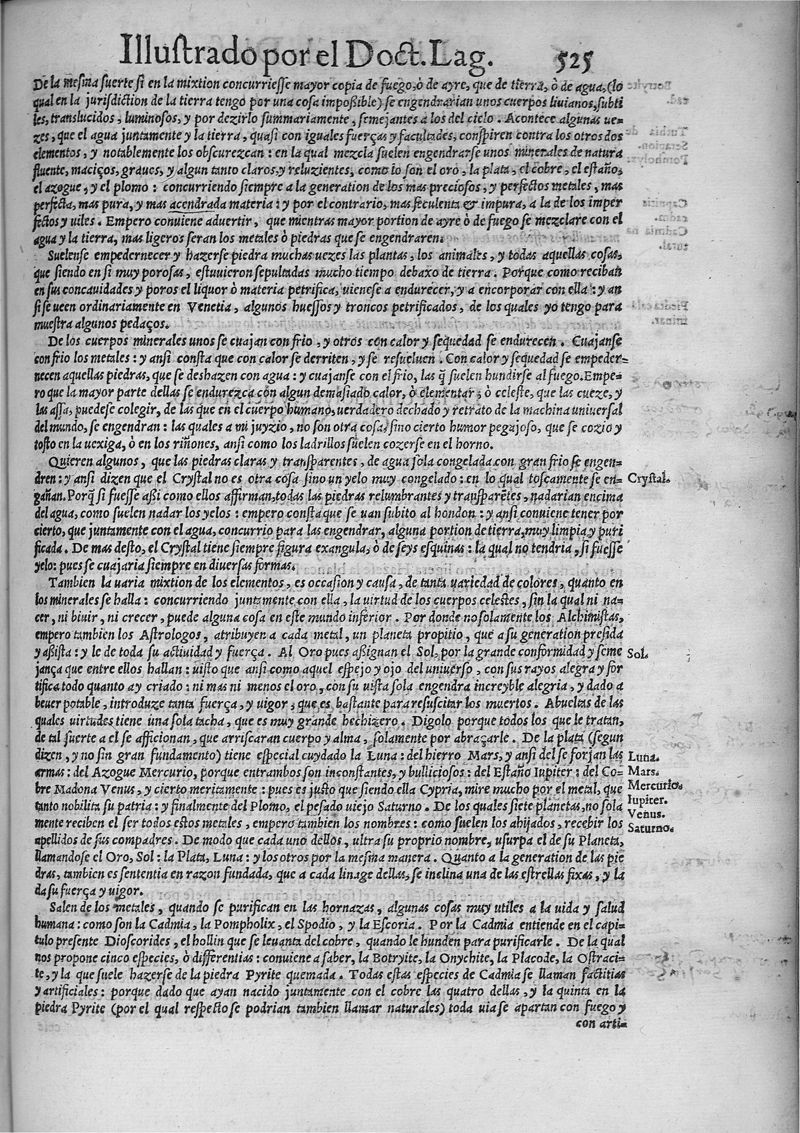 Illustrado por el Doct. Lag. 525
De la mesma suerte si en la mixtion concurriesse mayor copia de fuego, ò de ayre, que de tierra, ò de agua, (lo
qual en la jurisdiction de la tierra tengo por una cosa impoßible) se engendrarian unos cuerpos liuianos, subti
les, translucidos, luminosos, y por dezirlo summariamente, semejantes a los del cielo. Acontece algunas ue=
zes, que el agua juntamente y la tierra, quasi con iguales fuerças y facultades, conspiren contra los otros dos
elementos, y notablemente los obscurezcan: en la qual mezcla suelen engendrarse unos minerales de natura
fluente, maciços, graues, y algun tanto claros y reluzientes, como lo son el oro, la plata, el cobre, el estaño,
el azogue, y el plomo: concurriendo siempre a la generation de los mas preciosos, y perfectos metales, mas
perfecta, mas pura, y mas acendrada materia: y por el contrario, mas feculenta & impura, a la de los imper
fectos y uiles. Empero conuiene aduertir, que mientras mayor portion de ayre ò de fuego se mezclare con el
agua y la tierra, mas ligeros seran los metales ò piedras que se engendraren.
Suelense empedernecer y hazerse piedra muchas uezes las plantas, los animales, y todas aquellas cosas,
que siendo en si muy porosas, estuuieron sepultadas mucho tiempo debaxo de tierra. Porque como reciban
en sus concauidades y poros el liquor ò materia petrifica, uienese a endurecer, y a encorporar con ella: y an
si se ueen ordinariamente en Venetia, algunos huessos y troncos petrificados, de los quales yo tengo para
muestra algunos pedaços.
De los cuerpos minerales unos se cuajan con frio, y otros con calor y sequedad se endurecen. Cuajanse
con frio los metales: y ansi consta que con calor se derriten, y se resueluen. Con calor y sequedad se empeder=
necen aquellas piedras, que se deshazen con agua: y cuajanse con el frio, las q̃ suelen hundirse al fuego. Empe=
ro que la mayor parte dellas se endurezca con algun demasiado calor, ò elementar, ò celeste, que las cueze, y
las assa, puedese colegir, de las que en el cuerpo humano, uerdadero dechado y retrato de la machina uniuersal
del mundo, se engendran: las quales a mi juyzio, no son otra cosa, sino cierto humor pegajoso, que se cozio y
tosto en la uexiga, ò en los riñones, ansi como los ladrillos suelen cozerse en el horno.
Quieren algunos, que las piedras claras y transparentes, de agua sola congelada con gran frio se engen=
dren: y ansi dizen que el Crystal no es otra cosa sino un yelo muy congelado: en lo qual toscamente se en=
Crystal.
gañan. Porq̃ si fuesse aßi como ellos affirman, todas las piedras relumbrantes y transparẽtes, nadarian encima
del agua, como suelen nadar los yelos: empero consta que se uan subito al hondon: y ansi conuiene tener por
cierto, que juntamente con el agua, concurrio para las engendrar, alguna portion de tierra, muy limpia y puri
ficada. De mas desto, el Crystal tiene siempre figura exangula, ò de seys esquinas: la qual no tendria, si fuesse
yelo: pues se cuajaria siempre en diuersas formas.
Tambien la uaria mixtion de los elementos, es occasion y causa, de tanta uariedad de colores, quanto en
los minerales se halla: concurriendo juntamente con ella, la uirtud de los cuerpos celestes, sin la qual ni na=
cer, ni biuir, ni crecer, puede alguna cosa en este mundo inferior. Por donde no solamente los Alchimistas,
empero tambien los Astrologos, atribuyen a cada metal, un planeta propitio, que a su generation presida
y aßista: y le de toda su actiuidad y fuerça. Al Oro pues aßignan el Sol, por la grande conformidad y seme
Sol.
jança que entre ellos hallan: uisto que ansi como aquel espejo y ojo del uniuerso, con sus rayos alegra y for
tifica todo quanto ay criado: ni mas ni menos el oro, con su uista sola engendra increyble alegria, y dado a
beuer potable, introduze tanta fuerça, y uigor, que es bastante para resuscitar los muertos. Abueltas de las
quales uirtudes tiene una sola tacha, que es muy grande hechizero. Digolo porque todos los que le tratan,
de tal suerte a el se afficionan, que arriscaran cuerpo y alma, solamente por abraçarle. De la plata (segun
dizen, y no sin gran fundamento) tiene especial cuydado la Luna: del hierro Mars, y ansi del se forjan las
Luna.
armas: del Azogue Mercurio, porque entrambos son inconstantes, y bulliciosos: del Estaño Iupiter: del Co=
Mars.
bre Madona Venus, y cierto meritamente: pues es justo que siendo ella Cypria, mire mucho por el metal, que
Mercurio.
tanto nobilita su patria: y finalmente del Plomo, el pesado uiejo Saturno. De los quales siete planetas, no sola
Iupiter.
Venus.
mente reciben el ser todos estos metales, empero tambien los nombres: como suelen los ahijados, recebir los
Saturno.
apellidos de sus compadres. De modo que cada uno dellos, ultra su proprio nombre, usurpa el de su Planeta,
llamandose el Oro, Sol: la Plata, Luna: y los otros por la mesma manera. Quanto a la generation de las pie
dras, tambien es sententia en razon fundada, que a cada linage dellas, se inclina una de las estrellas fixas, y la
da su fuerça y uigor.
Salen de los metales, quando se purifican en las hornazas, algunas cosas muy utiles a la uida y salud
humana: como son la Cadmia, la Pompholix, el Spodio, y la Escoria. Por la Cadmia entiende en el capi=
tulo presente Dioscorides, el hollin que se leuanta del cobre, quando le hunden para purificarle. De la qual
nos propone cinco especies, ò differentias: conuiene a saber, la Botryite, la Onychite, la Placode, la Ostraci=
te, y la que suele hazerse de la piedra Pyrite quemada. Todas estas especies de Cadmia se llaman factitias
y artificiales: porque dado que ayan nacido juntamente con el cobre las quatro dellas, y la quinta en la
piedra Pyrite (por el qual respecto se podrian tambien llamar naturales) toda uia se apartan con fuego y
con arti=